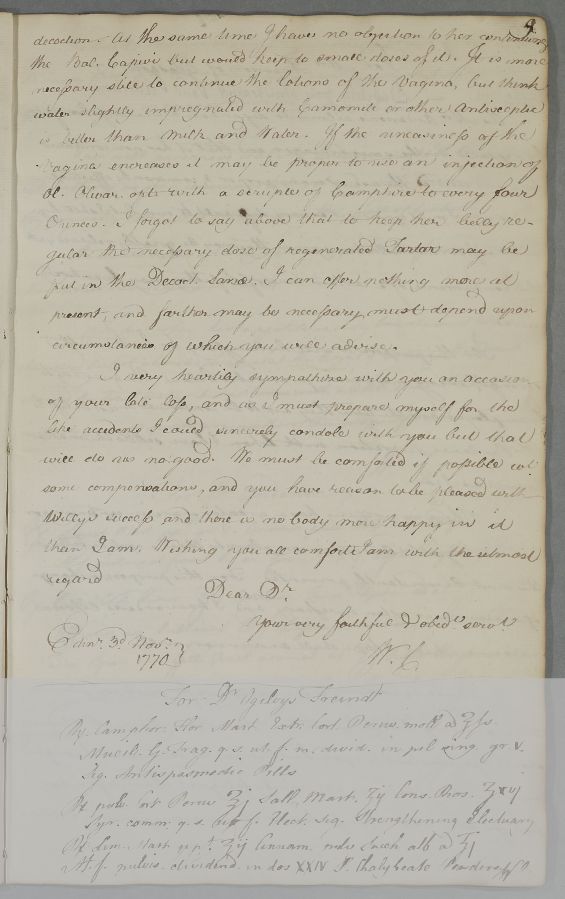 4
decoction. At the same time I have no objection to her continuing
the Bal. Capivi but would keep to small doses of it. It is more
necessary still to continue the lotions of the Vagina, but think
water slightly impregnated with Camomile or other Antiseptic
is better than Milk and Water. If the uneasiness of the
Vagina encreases it may be proper to use an injection of
Ol. Olivar. with a scruple of Camphire to every four
Ounces. I forgot to say above that to keep her belly re-
gular the necessary dose of regenerated Tartar may be
put in the Decoct. I can offer nothing more at
present, and farther may be necessary must depend upon
circumstances of which you will advise.
I very heartily sympathize with you on occasion
of your late loss, and as I must prepare myself for the
like accidents I could sincerely condole with you but that
will do us no good. We must be comforted if possible wt
some compensations, and you have reason to be pleased with
Willys success and there is no body more happy in it
than I am. Wishing you all comfort I am with the utmost
regard
Dear Dr
Your very faithful & obedt servt
Edinr 3d Novr
1770
W. C.
For Dr Ogilvys Freindt
Rx Camphor. Flor Mart. Extr. Cort. Peruv. moll a ʒ fs.
Mucil. G. Trag. q. s. ut. f. m. divid. in pil sing. gr v.
Sig. Antispasmodic Pills
Rx pulv. Cort Peruv ʒj Sall. Mart. ʒij Cons. Ros. ʒxvj
Syr. comm q. s. ut f. Elect. Sig. Strengthening Electuary
Rx Lim. Mart ppt ʒij Cinnam. Sacch alb a ʒj
M. f. pulvis. dividend. in dos XXIV S. Chalybeate Powders